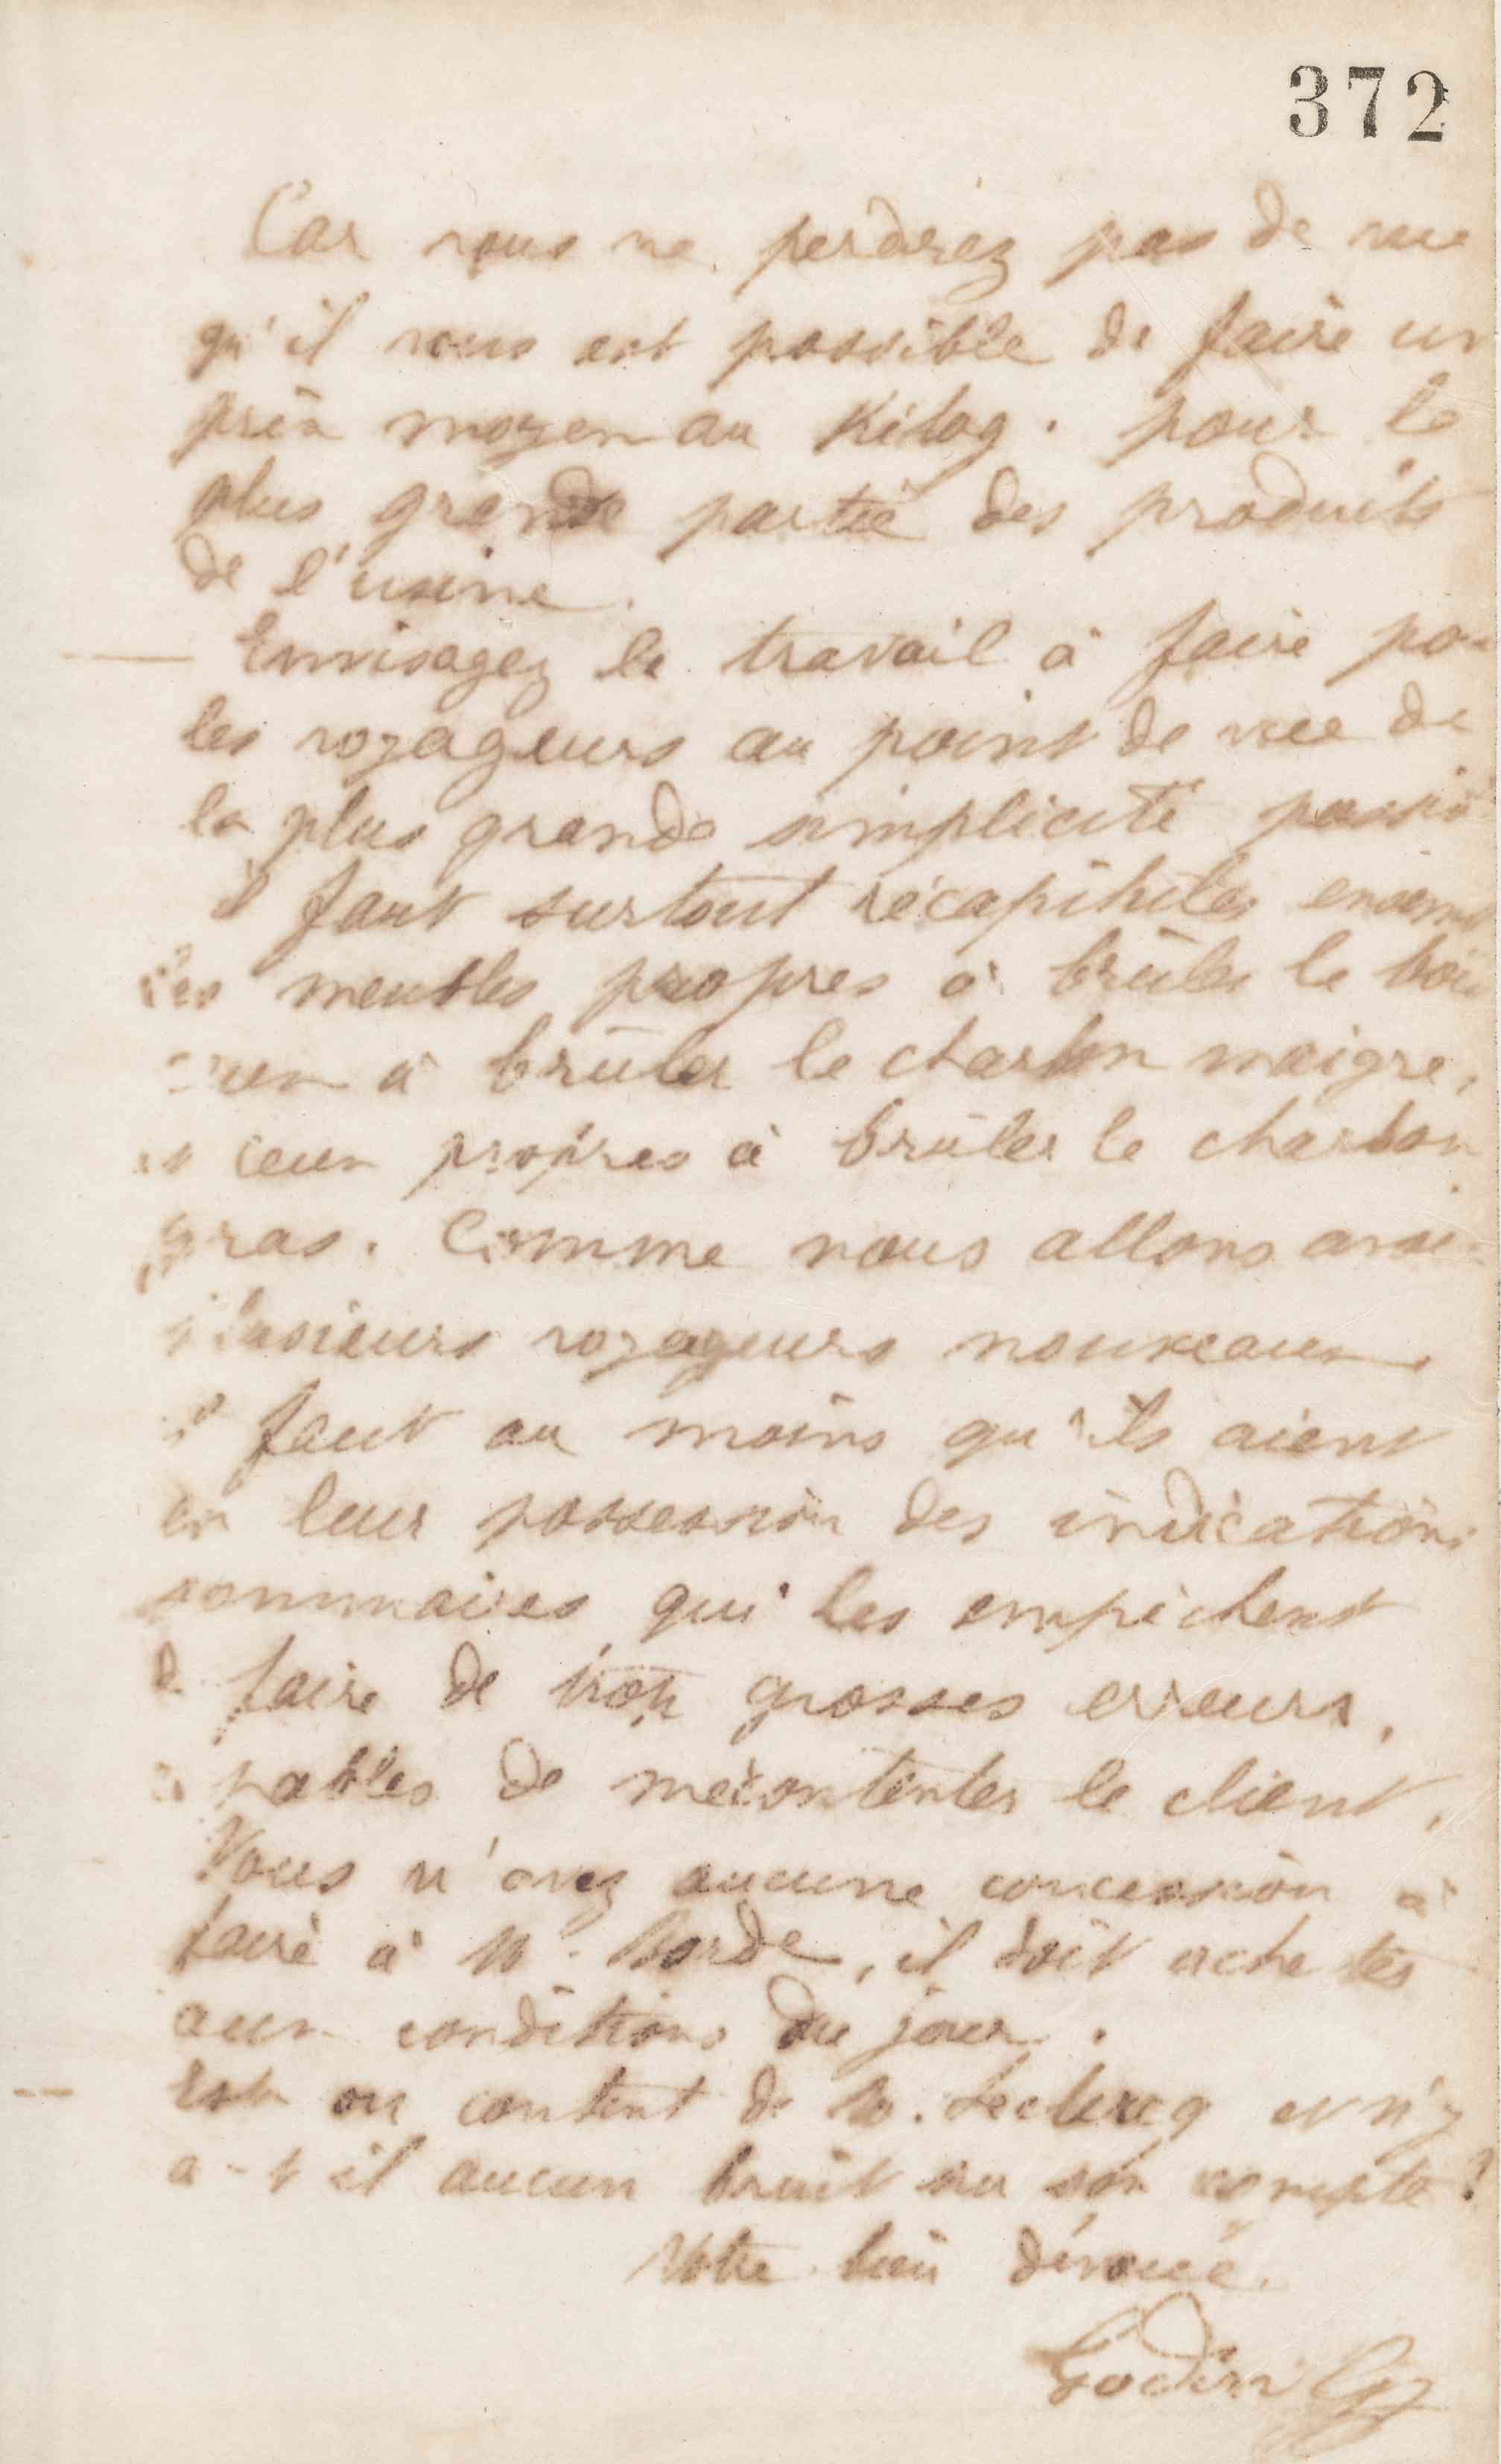 372
Car vous ne perdrez pas de vue
qu'il vous est possible de faire un
prix moyen au Kilog. pour la
plus grande partie des produits
de l'usine.
Envisagez le travail à faire pour
les voyageurs au point de vue de
la plus grande simplicité possib
il faut surtout récapituler ensemb
les meubles propres à brûler le bois
ceux à brûler le charbon maigre,
et ceux propres à brûler le charbon
gras. Comme nous allons avoir
plusieurs voyageurs nouveaux
il faut au moins qu'ils aient
en leur possession des indications
sommaires qui les empêchent
de faire de trop grosses erreurs,
capables de mécontenter le client.
Vous n'avez aucune concession à
faire à M. Borde, il doit acheter
aux conditions du jour.
Est on content de M. Leclercq et n'y
a-t il aucun bruit sur son compte?
Votre bien dévoué.
Godin